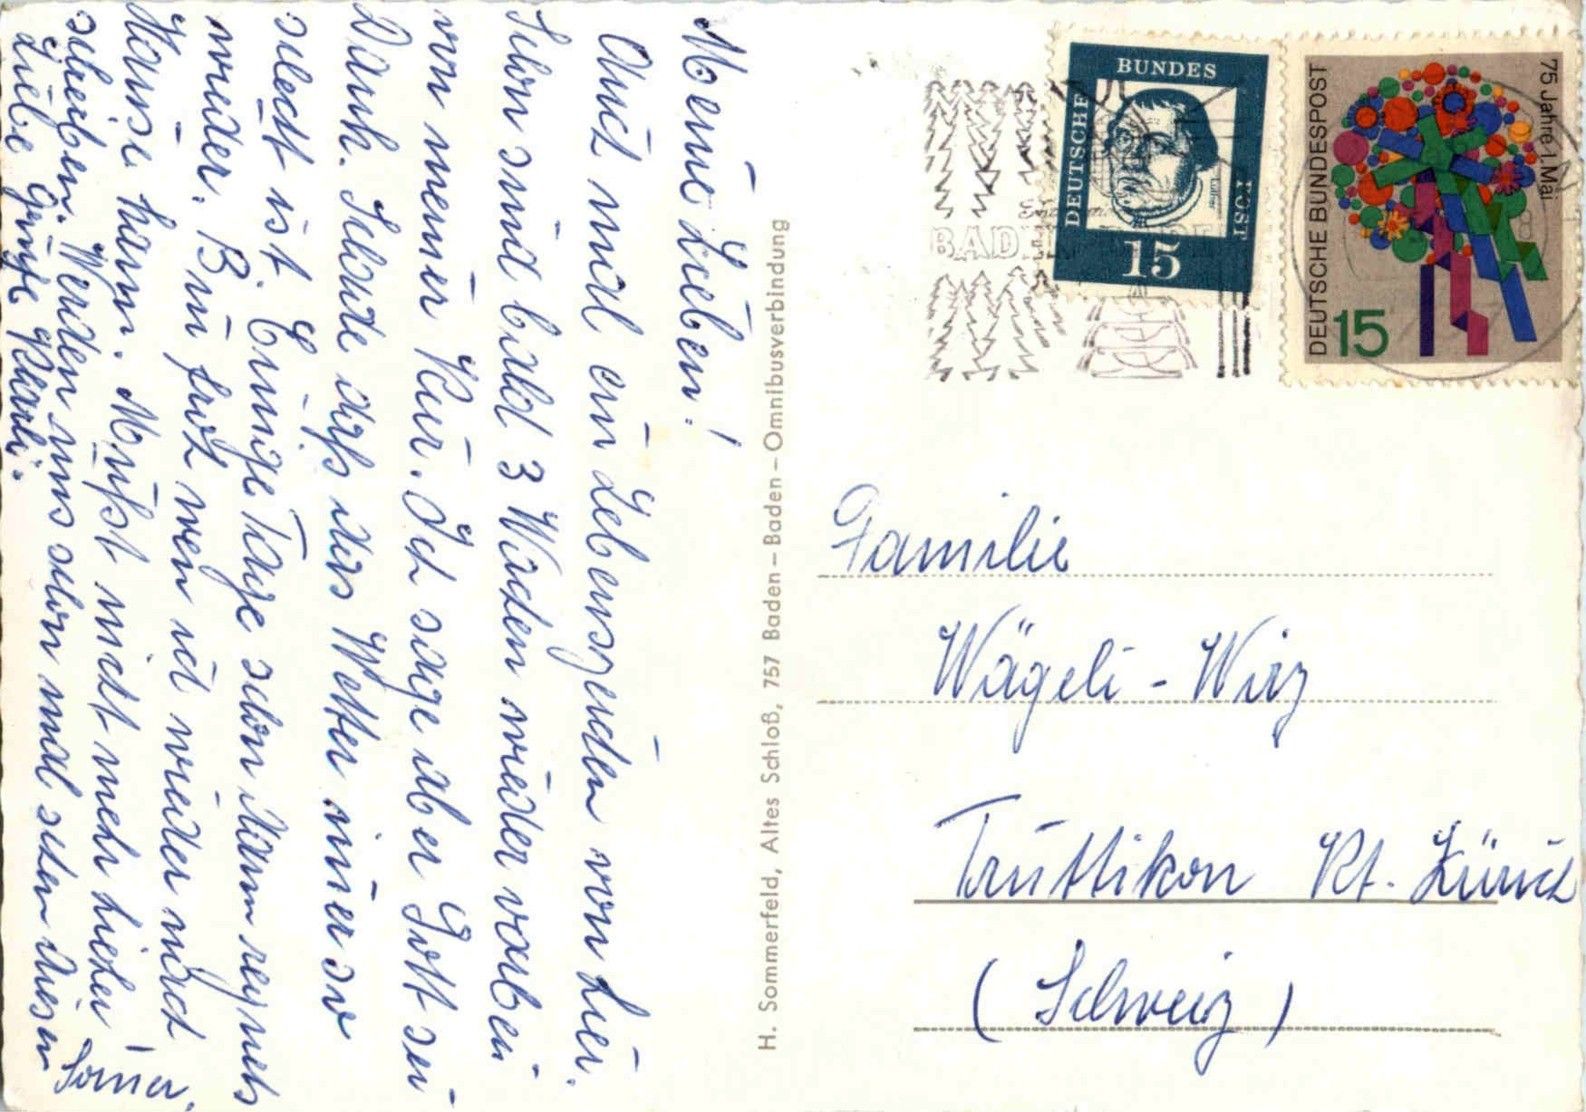 Meine Lieben!
Auch mal ein Lebenszeichen von hier.
Schon sind bald 3 Wochen wieder vorbei
von meiner Kur. Ich sage aber Gott sei
Dank. Schade dass das Wetter immer so
schlecht ist. Einige Tage schon dann regnets
wieder. Bin froh wen ich wieder nach
Hause kann. Müsst nicht mehr hieher
schreiben. Werden uns schon mal sehen diesen Somer.
Liebe Grüsse
H. Sommerfeld, Altes Schloß, 757 Baden–Baden–Omnibusverbindung
BUNDES
DEUTSCHE
POST
Luther
15
75 Jahre 1. Mai
DEUTSCHE BUNDESPOST
15
BAD
Familie
Wägeli - Wirz
Truttikon Kt. Zürich
(Schweiz)